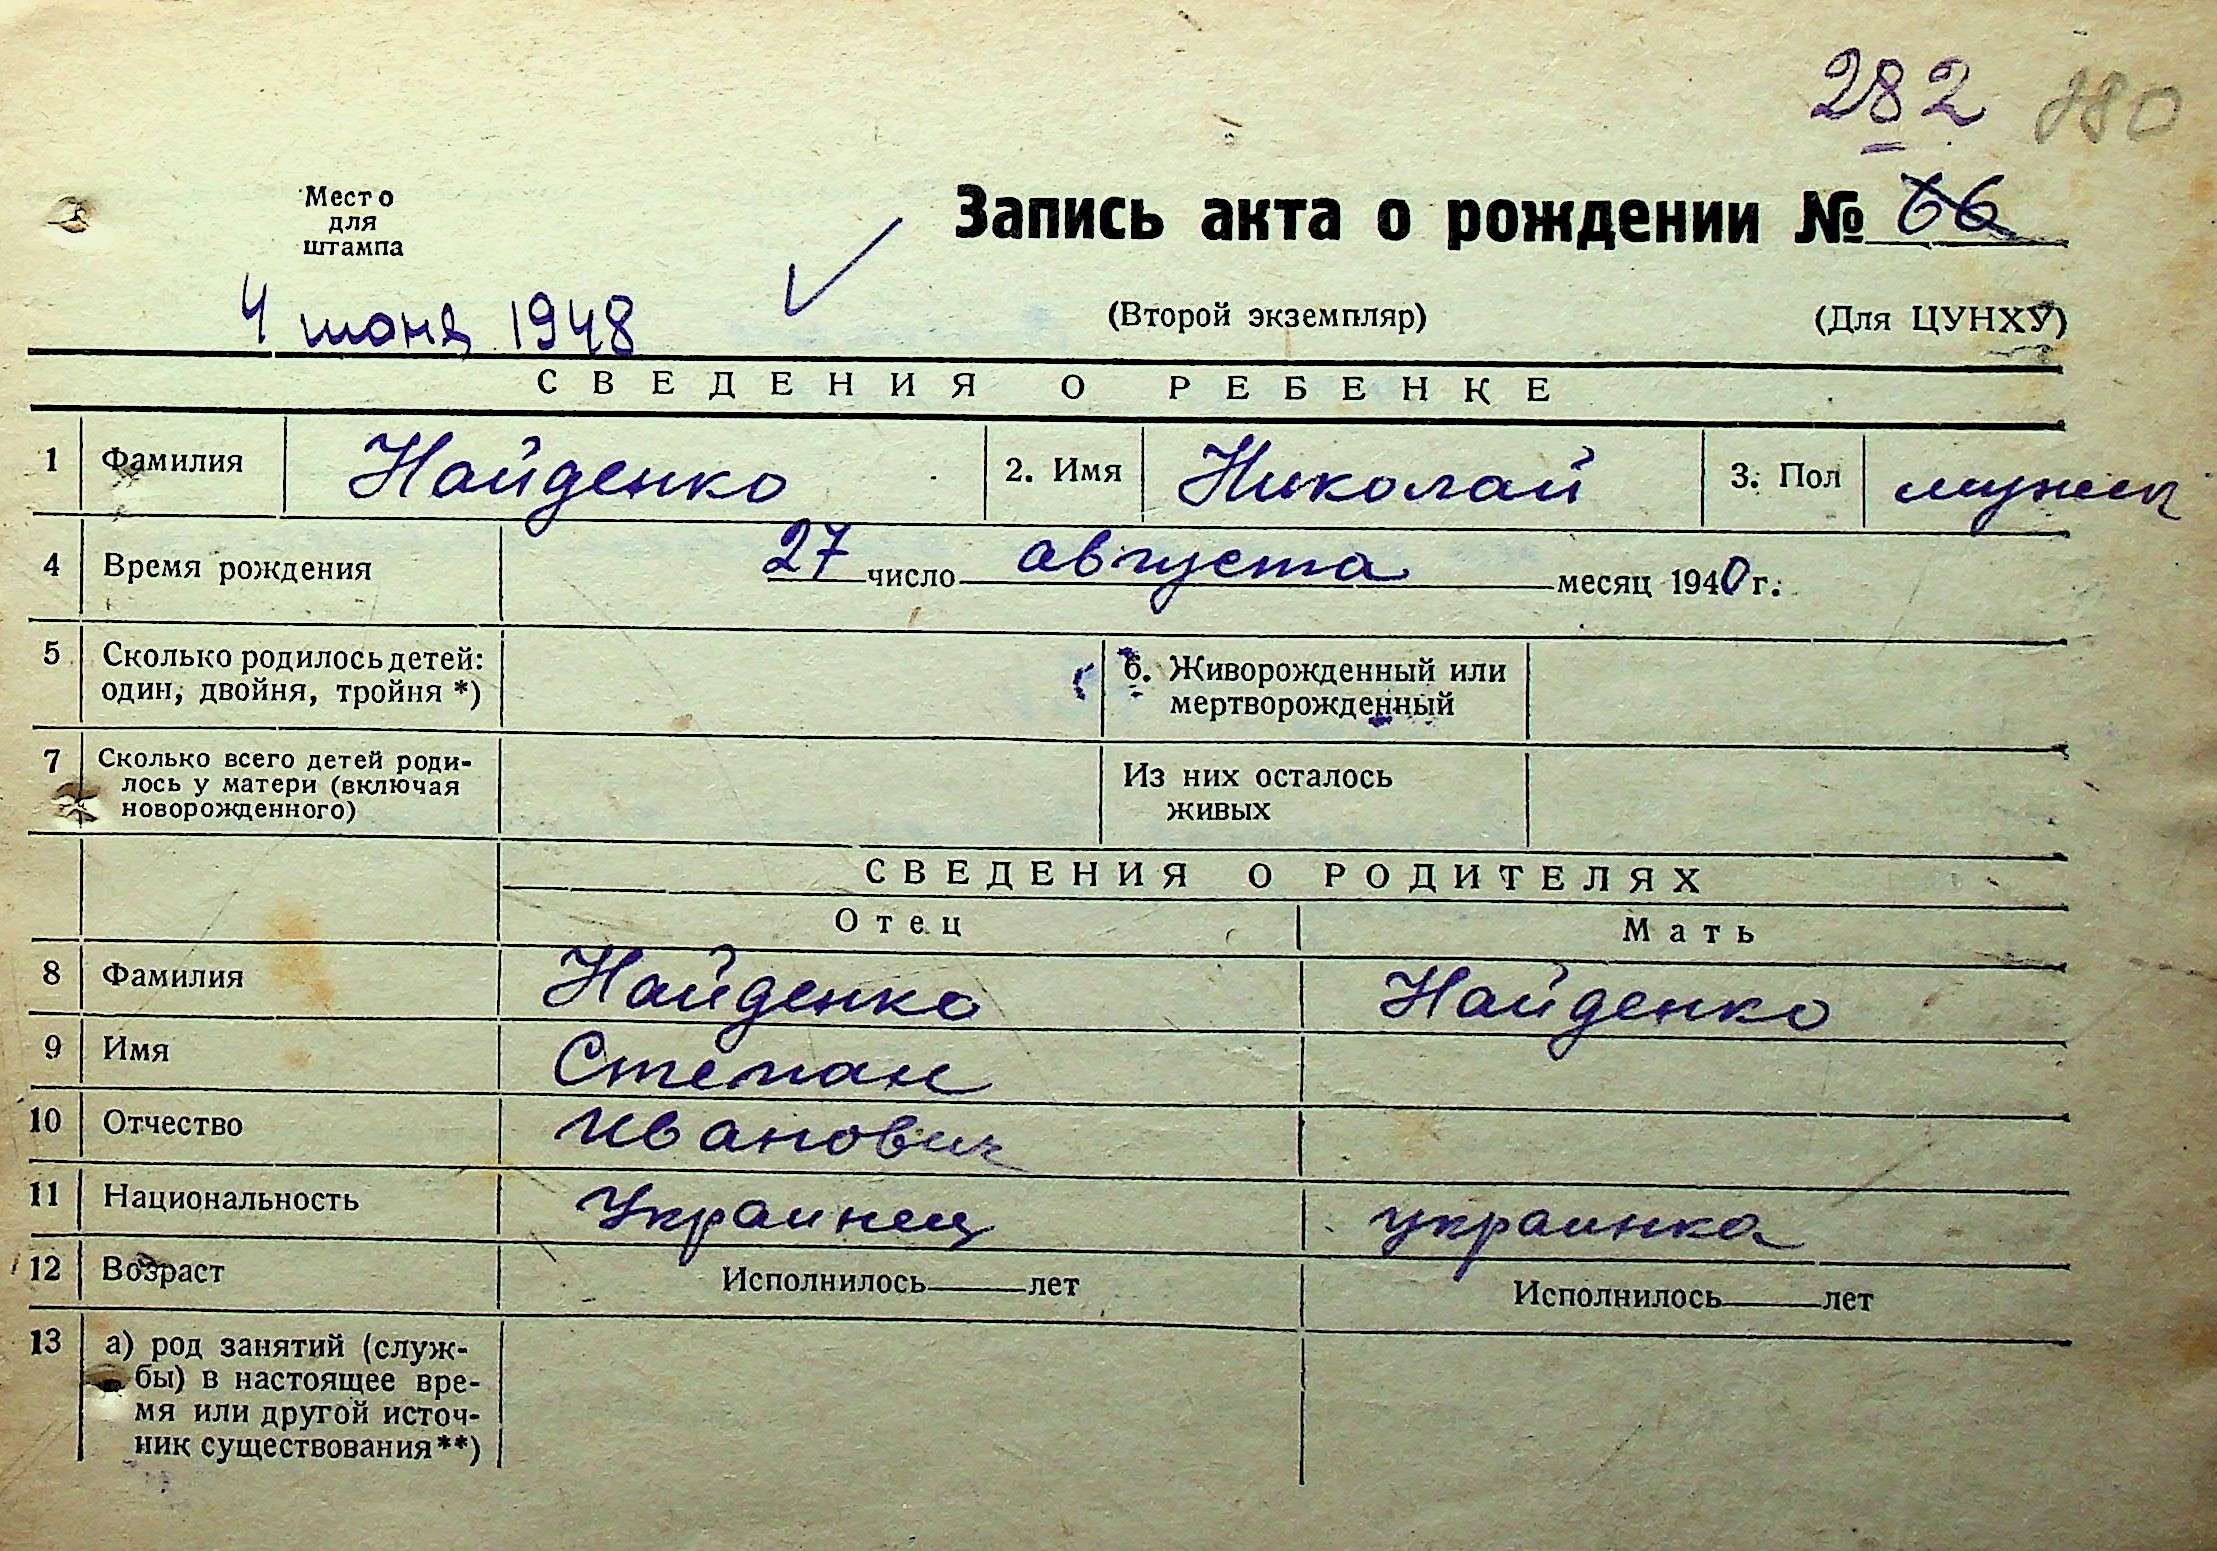 282 180
Место
для
штампа
Запись акта о рождении № 66
4 июня 1948
(Второй экземпляр)
(Для ЦУНХУ)
СВЕДЕНИЯ О РЕБЕНКЕ
1 Фамилия Найденко 2. Имя Николай 3. Пол мужск
4 Время рождения 27 число августа месяц 1940 г.
5 Сколько родилось детей:
один, двойня, тройня *)
6. Живорожденный или
мертворожденный
7 Сколько всего детей роди-
лось у матери (включая
новорожденного)
Из них осталось
живых
СВЕДЕНИЯ О РОДИТЕЛЯХ
Отец Мать
8 Фамилия Найденко Найденко
9 Имя Степан
10 Отчество Иванович
11 Национальность Украинец украинка
12 Возраст Исполнилось лет Исполнилось лет
13 а) род занятий (служ-
бы) в настоящее вре-
мя или другой источ-
ник существования**)